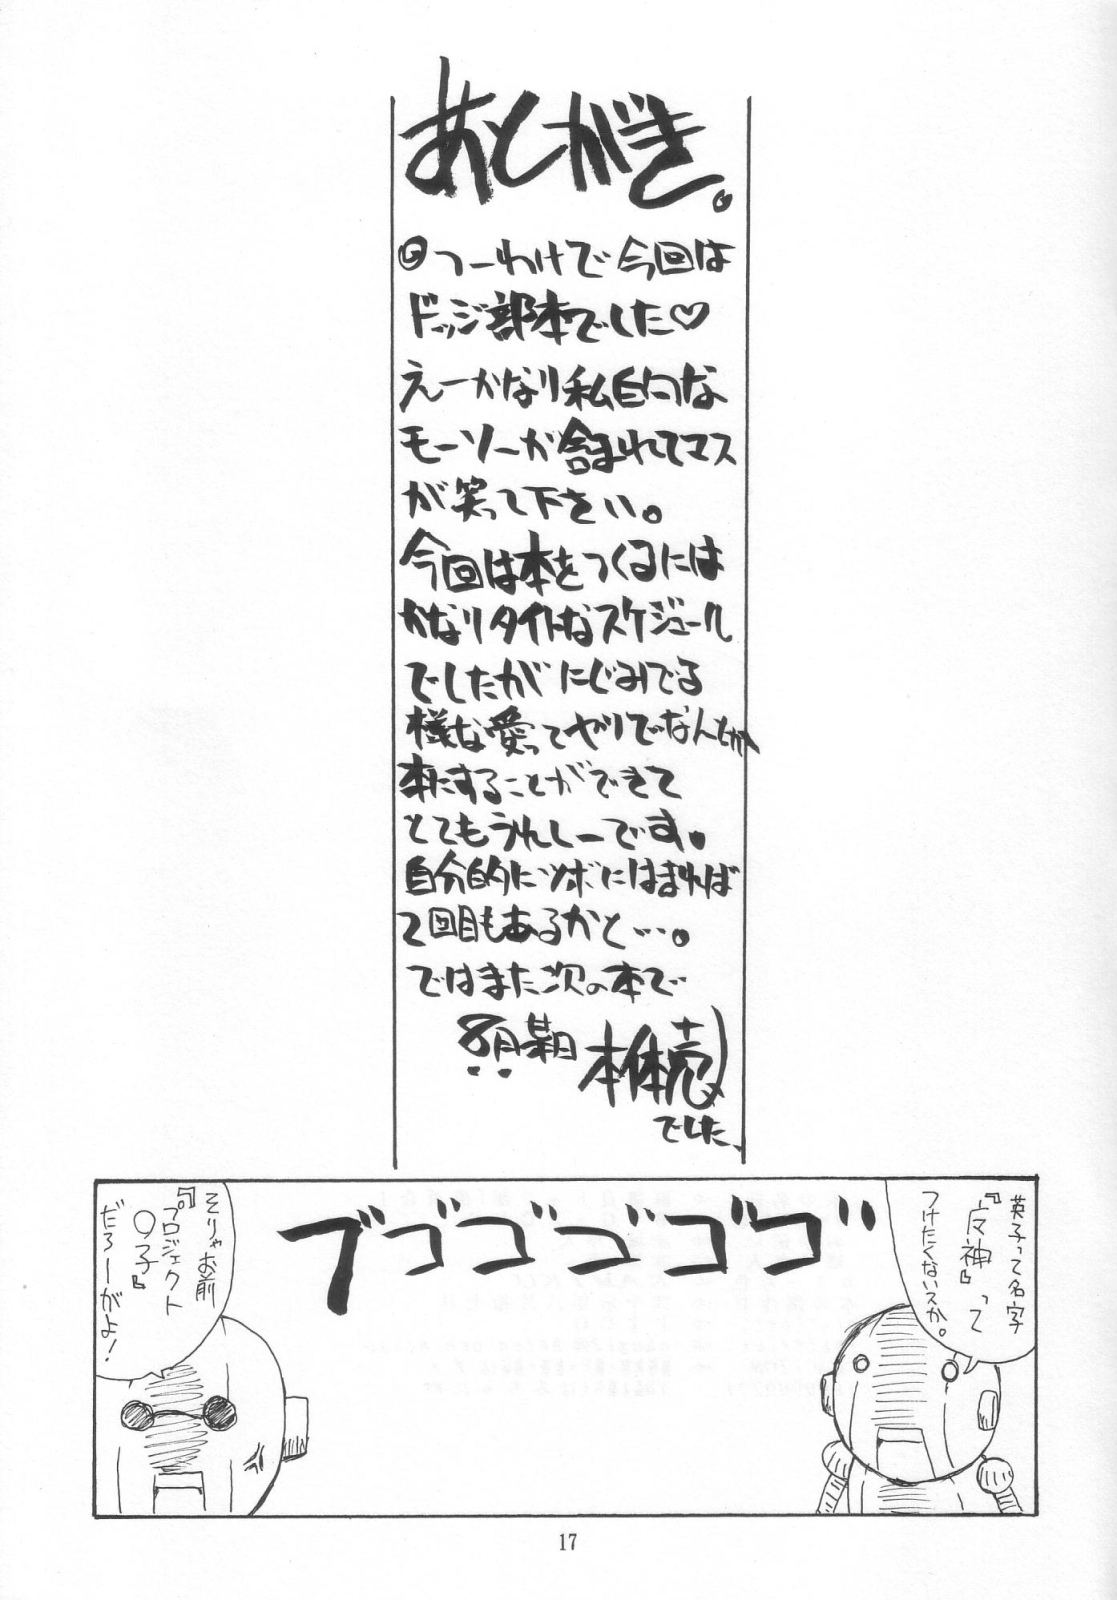 あとがき。
つーわけで今回は
ドッジ部本でした♡
えーかなり私的な
モーソーが含まれてマス
が笑って下さい。
今回は本をつくるには
かなりタイトなスケジュール
でしたがにじみでる
様な愛ってヤツでなんとか
本にすることができて
とてもうれしーです。
自分的にツボにはまれば
2回目もあるかと…。
ではまた次の本で
8月某日 本体売
でした、
英子って名字
『皮神』って
つけたくないスか。
ゴゴゴゴゴゴ
そりゃお前
『プロジェクト
〇子』
だろーがよ!
17